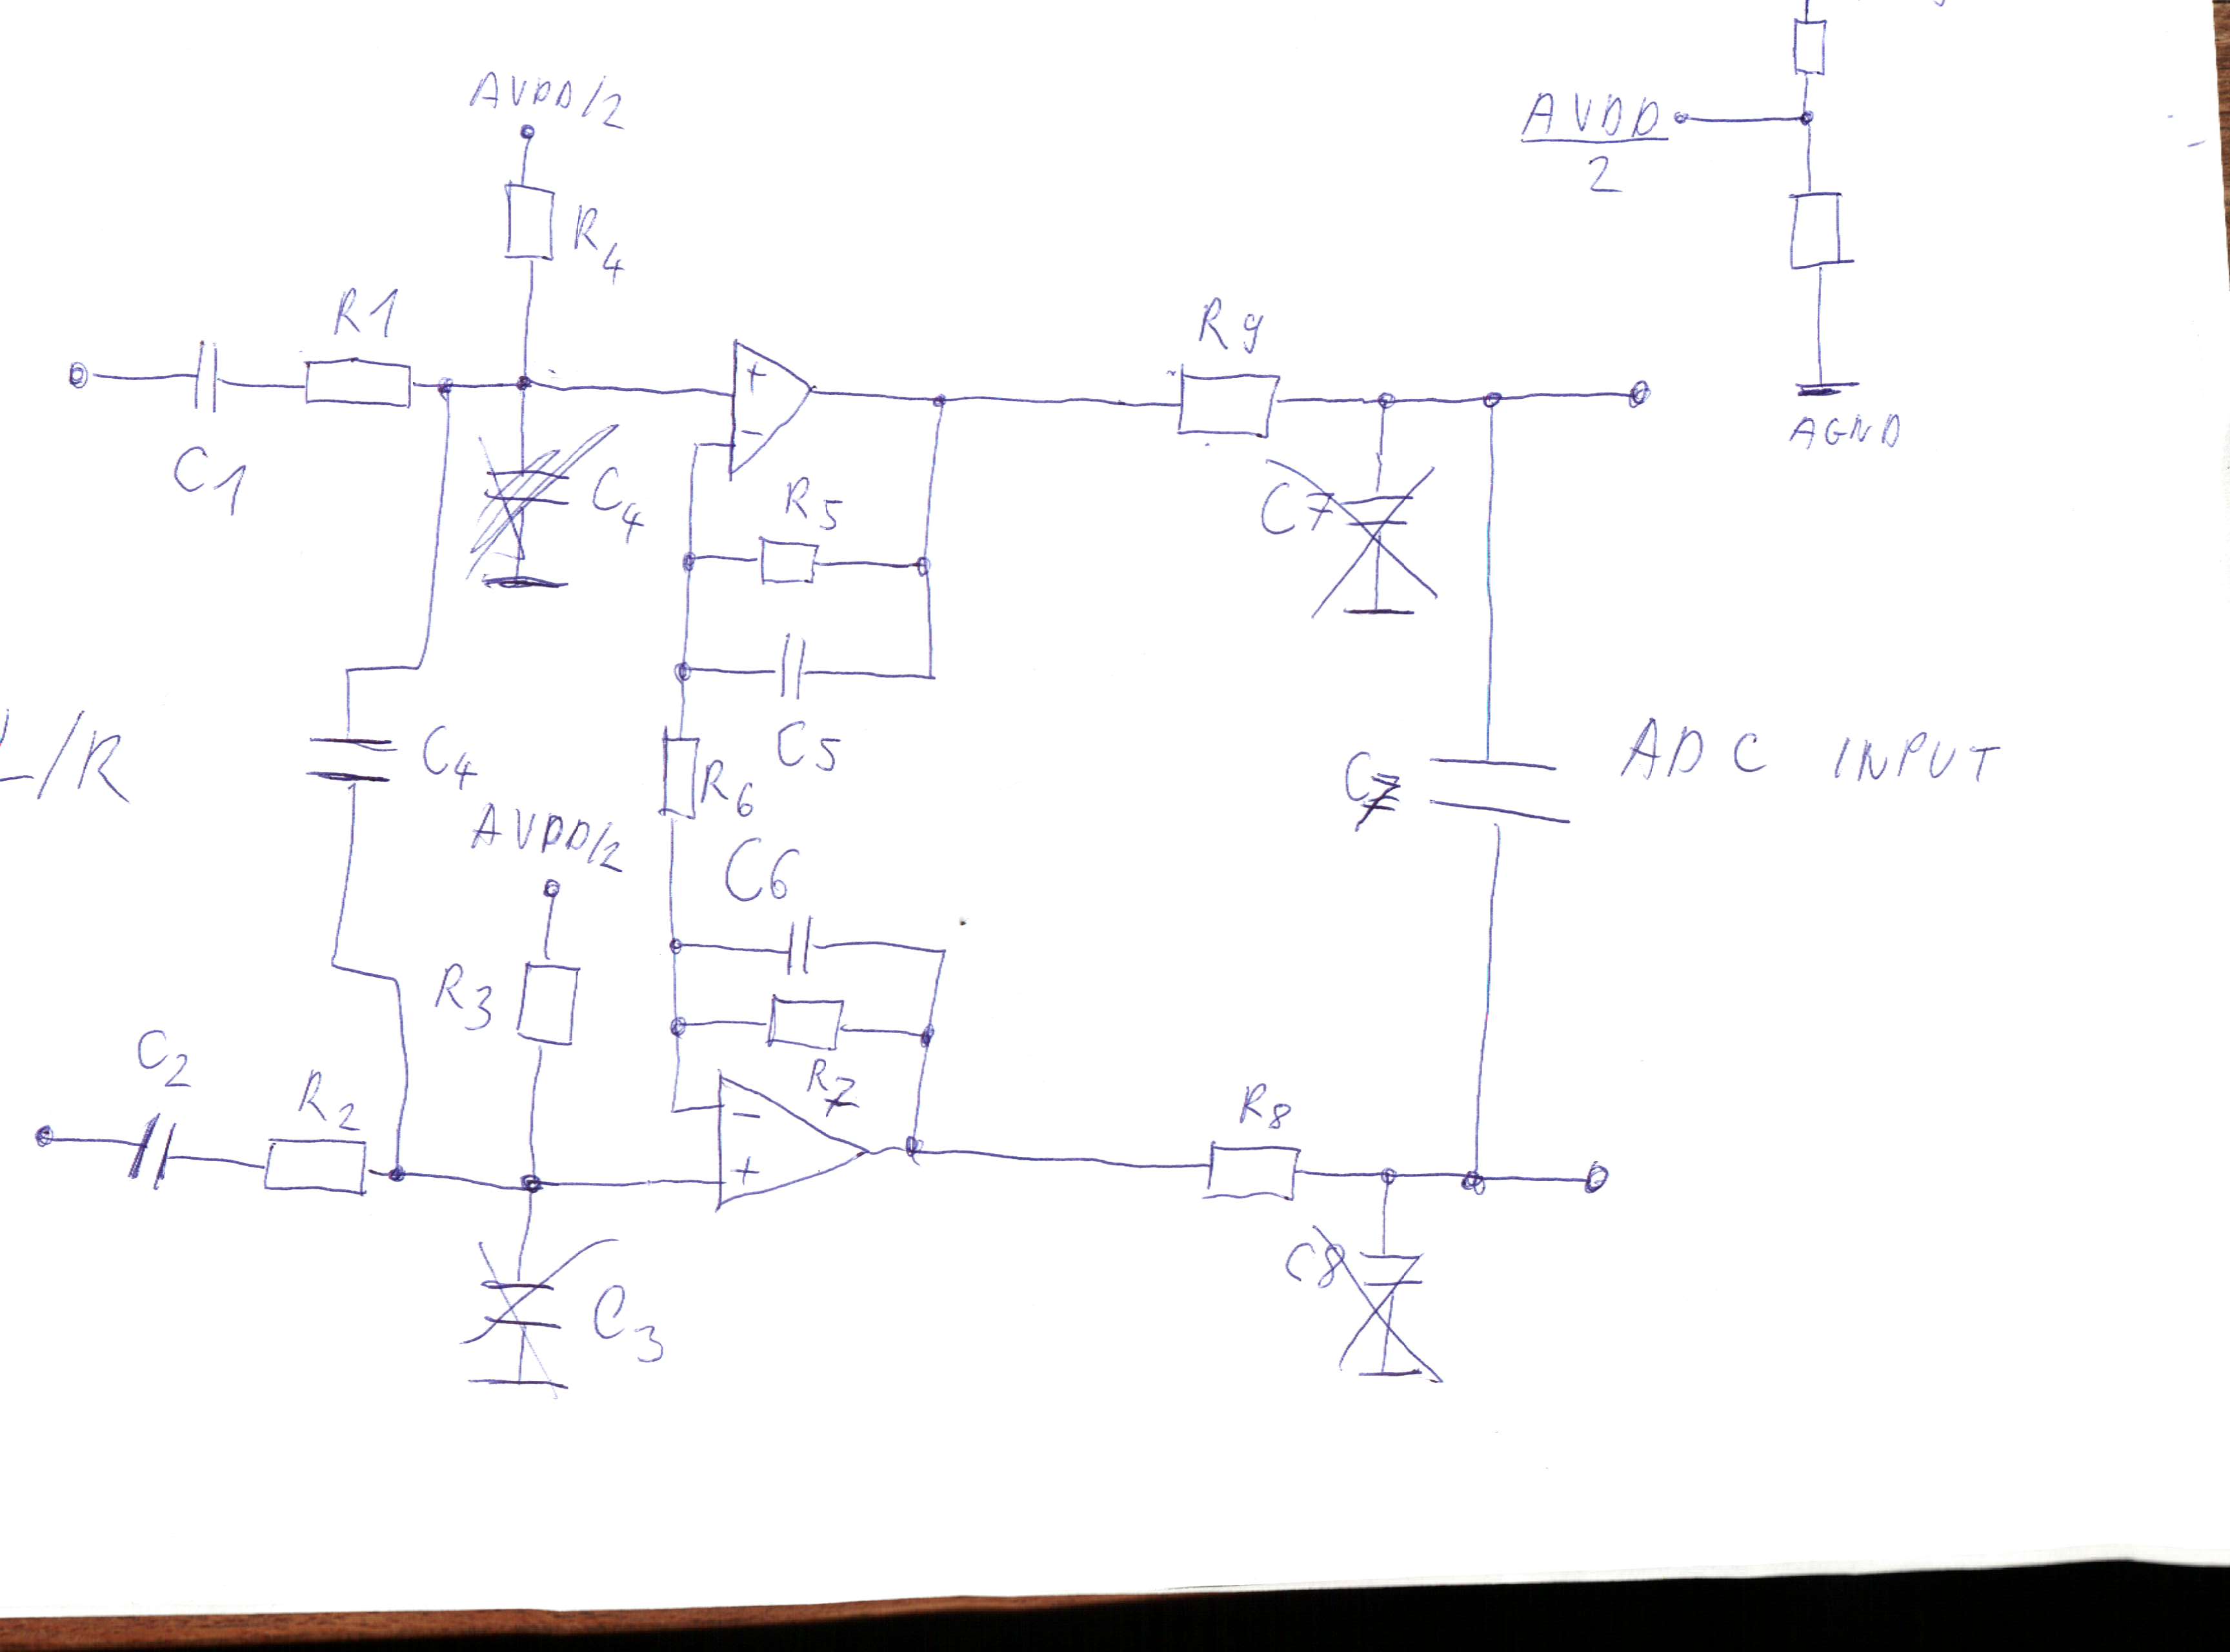 AVDD/2
AVDD
2
R4
R1
R9
+
C1
C4
-
R5
C7
AGND
L/R
C4
C5
R6
C7
ADC INPUT
AVDD/2
C6
R3
C2
R2
R7
-
+
R8
C8
C3